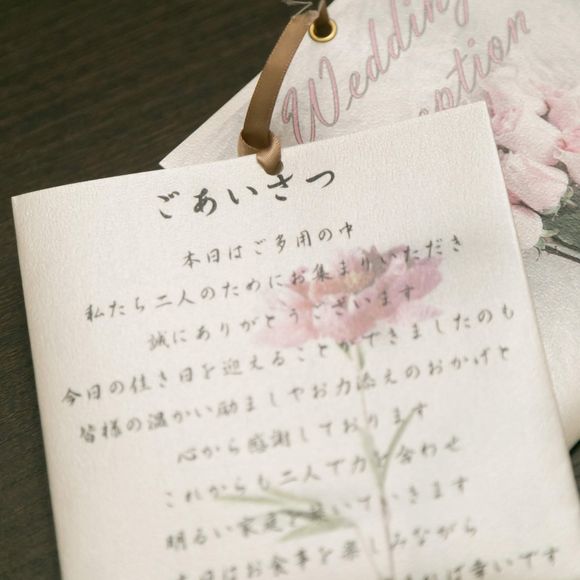 Wedding
ption
ごあいさつ
本日はご多用の中
私たち二人のためにお集まりいただき
誠にありがとうございます
今日の佳き日を迎えることができましたのも
皆様の温かい励ましやお力添えのおかげと
心から感謝しております
これからも二人で力を合わせ
明るい家庭を築いていきます
本日はお食事を楽しみながら
ば幸いです